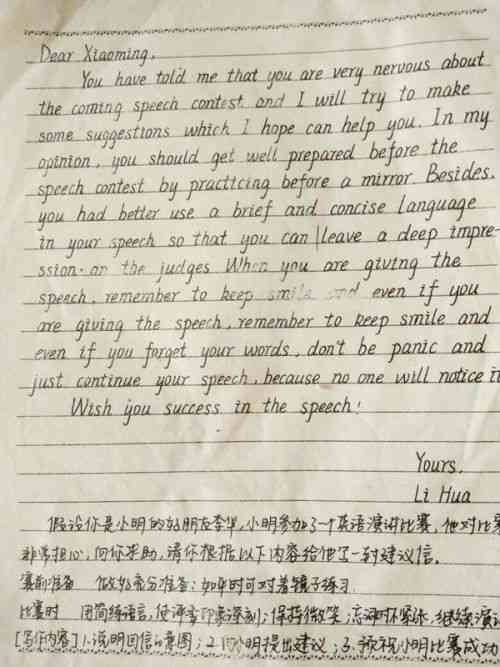 Dear Xiaoming,
You have told me that you are very nervous about
the coming speech contest and I will try to make
some suggestions which I hope can help you. In my
opinion, you should get well prepared before the
speech contest by practicing before a mirror. Besides,
you had better use a brief and concise language
in your speech so that you can leave a deep impre-
ssion on the judges When you are giving the
speech, remember to keep smile and even if you
are giving the speech, remember to keep smile and
even if you forget your words, don't be panic and
just continue your speech, because no one will notice it
Wish you success in the speech!
Yours,
Li Hua
假设你是小明的好朋友李华,小明参加了一个英语演讲比赛,他对比赛
非常担心,向你求助,请你根据以下内容给他写一封建议信。
赛前准备 做好充分准备:如平时可对着镜子练习
比赛时 用简练语言,使评委印象深刻;保持微笑 忘词时不紧张,继续演讲
[写作内容] 1.说明回信的意图;2.向小明提出建议;3.预祝小明比赛成功